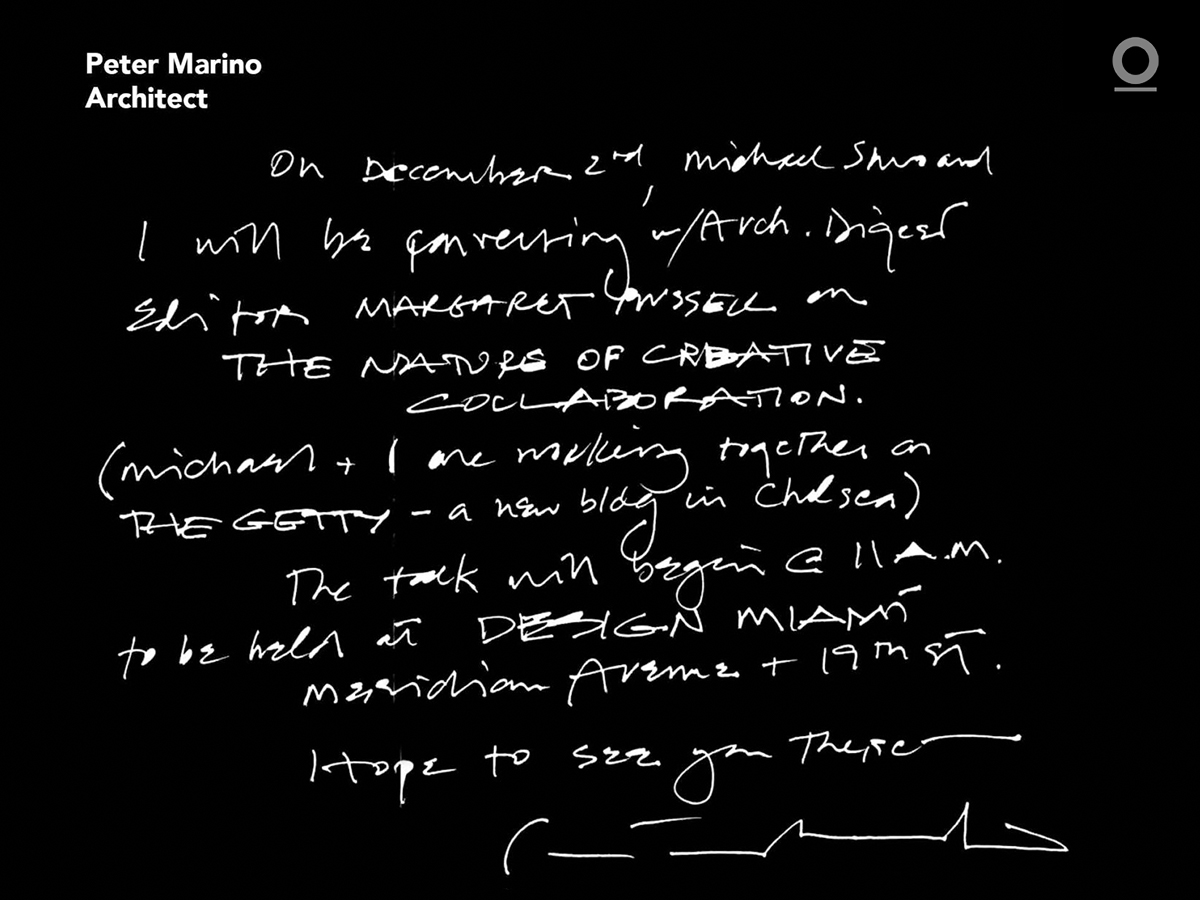 Peter Marino
Architect
On December 2nd, Michael Shvo and
I will be conversing w/Arch. Digest
Editor MARGARET RUSSELL on
THE NATURE OF CREATIVE
COLLABORATION.
(Michael + I are working together on
THE GETTY - a new bldg in Chelsea)
The talk will begin @ 11 A.M.
to be held at DESIGN MIAMI
Meridian Avenue + 19th ST.
Hope to see you there